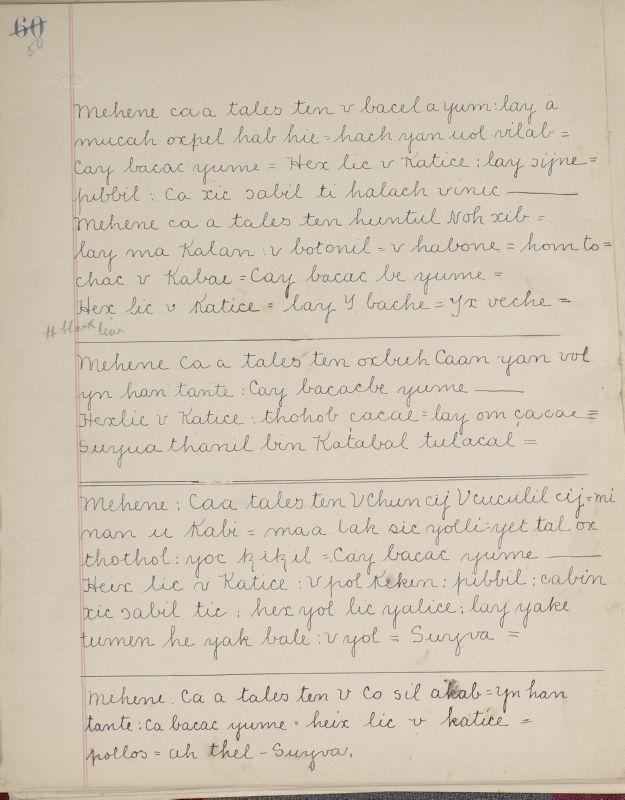 60
50
Mehene ca a tales ten v bacel a yum: lay a
mucah oxpel hab hie = hach yan uol vilab =
Cay bacac yume = Hex lic v Katice : lay sijne =
pibbil : Ca xic ɔabil ti halach vinic ———
Mehene ca a tales ten huntul Noh xib =
lay ma Kalan : v botonil = v habone = hom to =
chac v Kabae = Cay bacac be yume =
Hex lic v Katice = lay Y bache = Yx veche =
# black line
Mehene Ca a tales ten oxbuh Caan yan vol
yn han tante : Cay bacacbe yume ——
Hexlic v Katice : thohob cacae = lay om çacae =
Suyua thanil bin Katabal tulacal =
Mehene : Caa tales ten V Chun cij V cuculil cij = mi
nan u Kabi = maa lak sic yolli = yet tal ox
thothol : yoc kikil = Cay bacac yume ———
Heix lic v Katice : V pol Keken : pibbil : cabin
xic ɔabil tic ; hex yol lic yalice ; lay yake
tumen he yak bale : v yol = Suyva =
Mehene . Ca a tales ten v Co sil akab = Yn han
tante : ca bacac yume = heix lic v katice =
pollos = ah thel - Suyva.